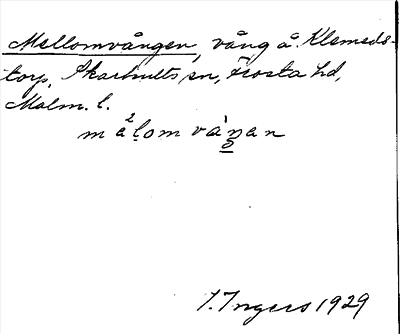 Mellomvången, vång å Klemeds-
torp, Skarhults sn, Frosta hd,
Malm. l.
må²lomvàŋan
I. Ingers 1929